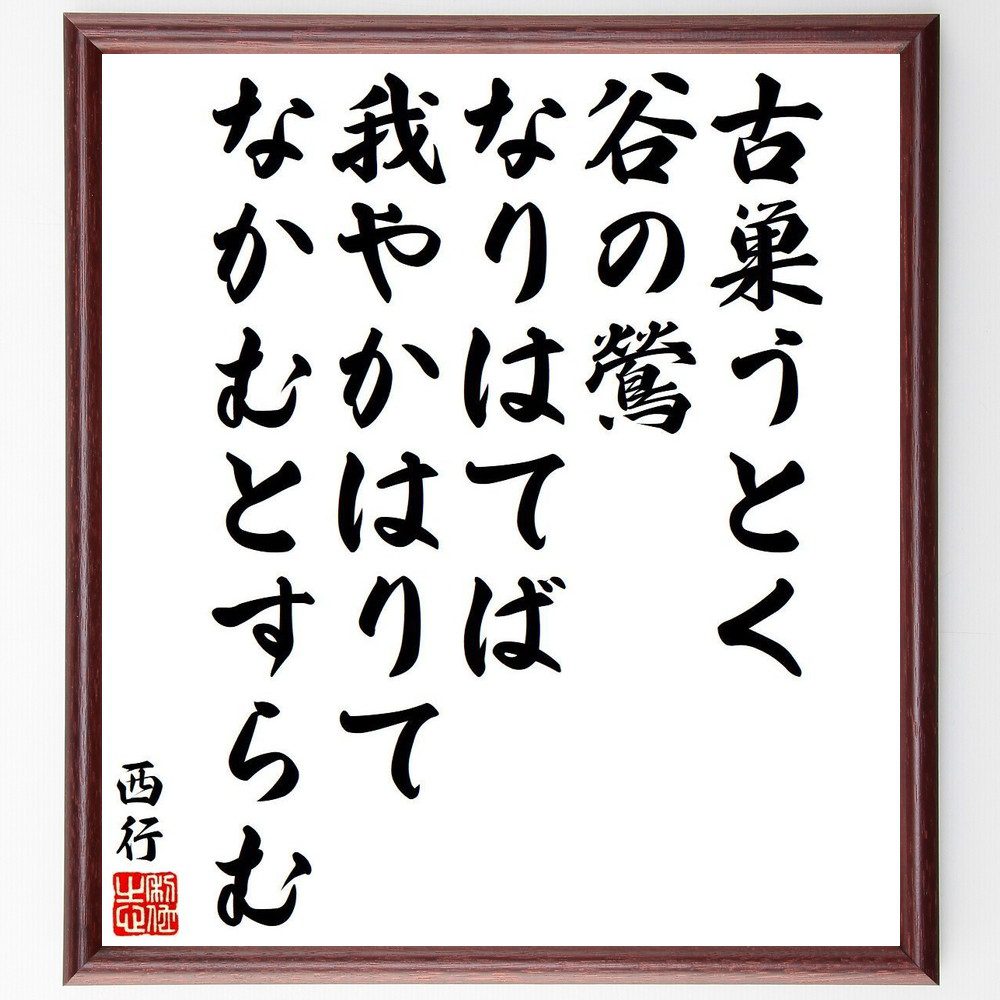 古巣うとく
谷の鶯
なりはてば
我やかはりて
なかむとすらむ
西行